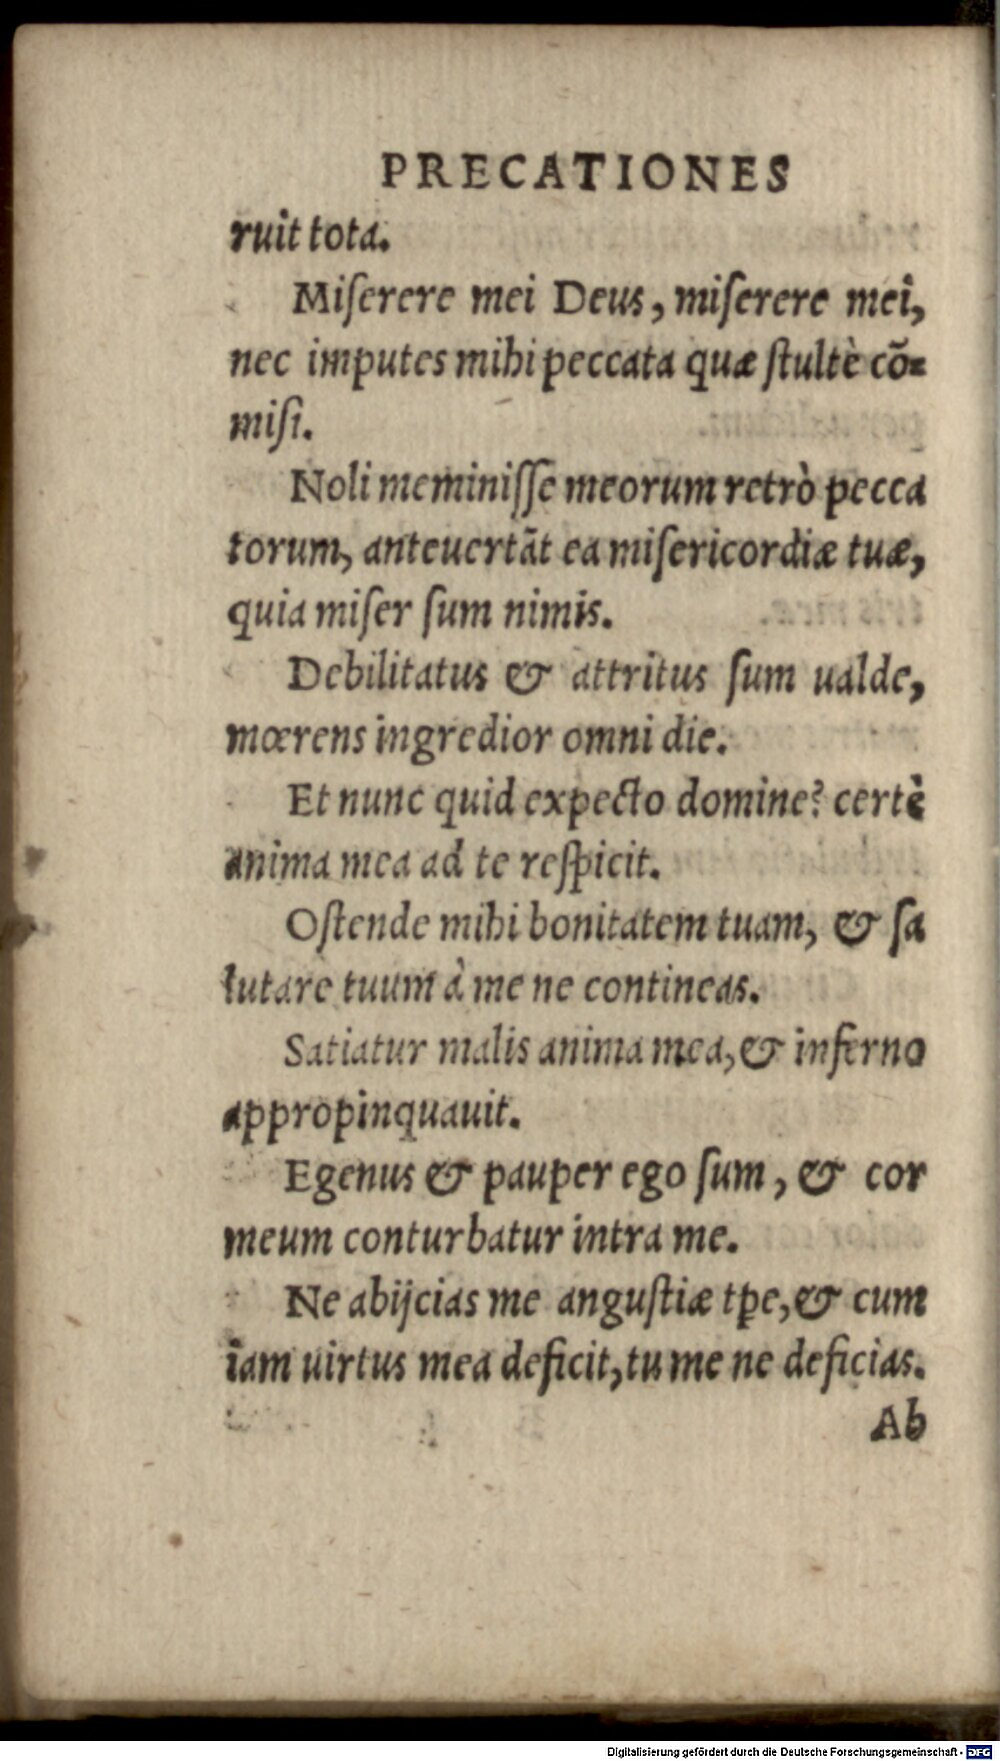 PRECATIONES
ruit tota.
Miſerere mei Deus, miſerere mei,
nec imputes mihi peccata quæ ſtultè cō=
miſi.
Noli meminiſſe meorum retrò pecca
torum, anteuertāt ea miſericordiæ tuæ,
quia miſer ſum nimis.
Debilitatus & attritus ſum ualde,
mœrens ingredior omni die.
Et nunc quid expecto domine? certè
anima mea ad te reſpicit.
Oſtende mihi bonitatem tuam, & ſa
lutare tuum à me ne contineas.
Satiatur malis anima mea, & inferno
appropinquauit.
Egenus & pauper ego ſum, & cor
meum conturbatur intra me.
Ne abijcias me anguſtiæ tp̄e, & cum
iam uirtus mea deficit, tu me ne deficias.
Ab
Digitalisierung gefördert durch die Deutsche Forschungsgemeinschaft - DFG